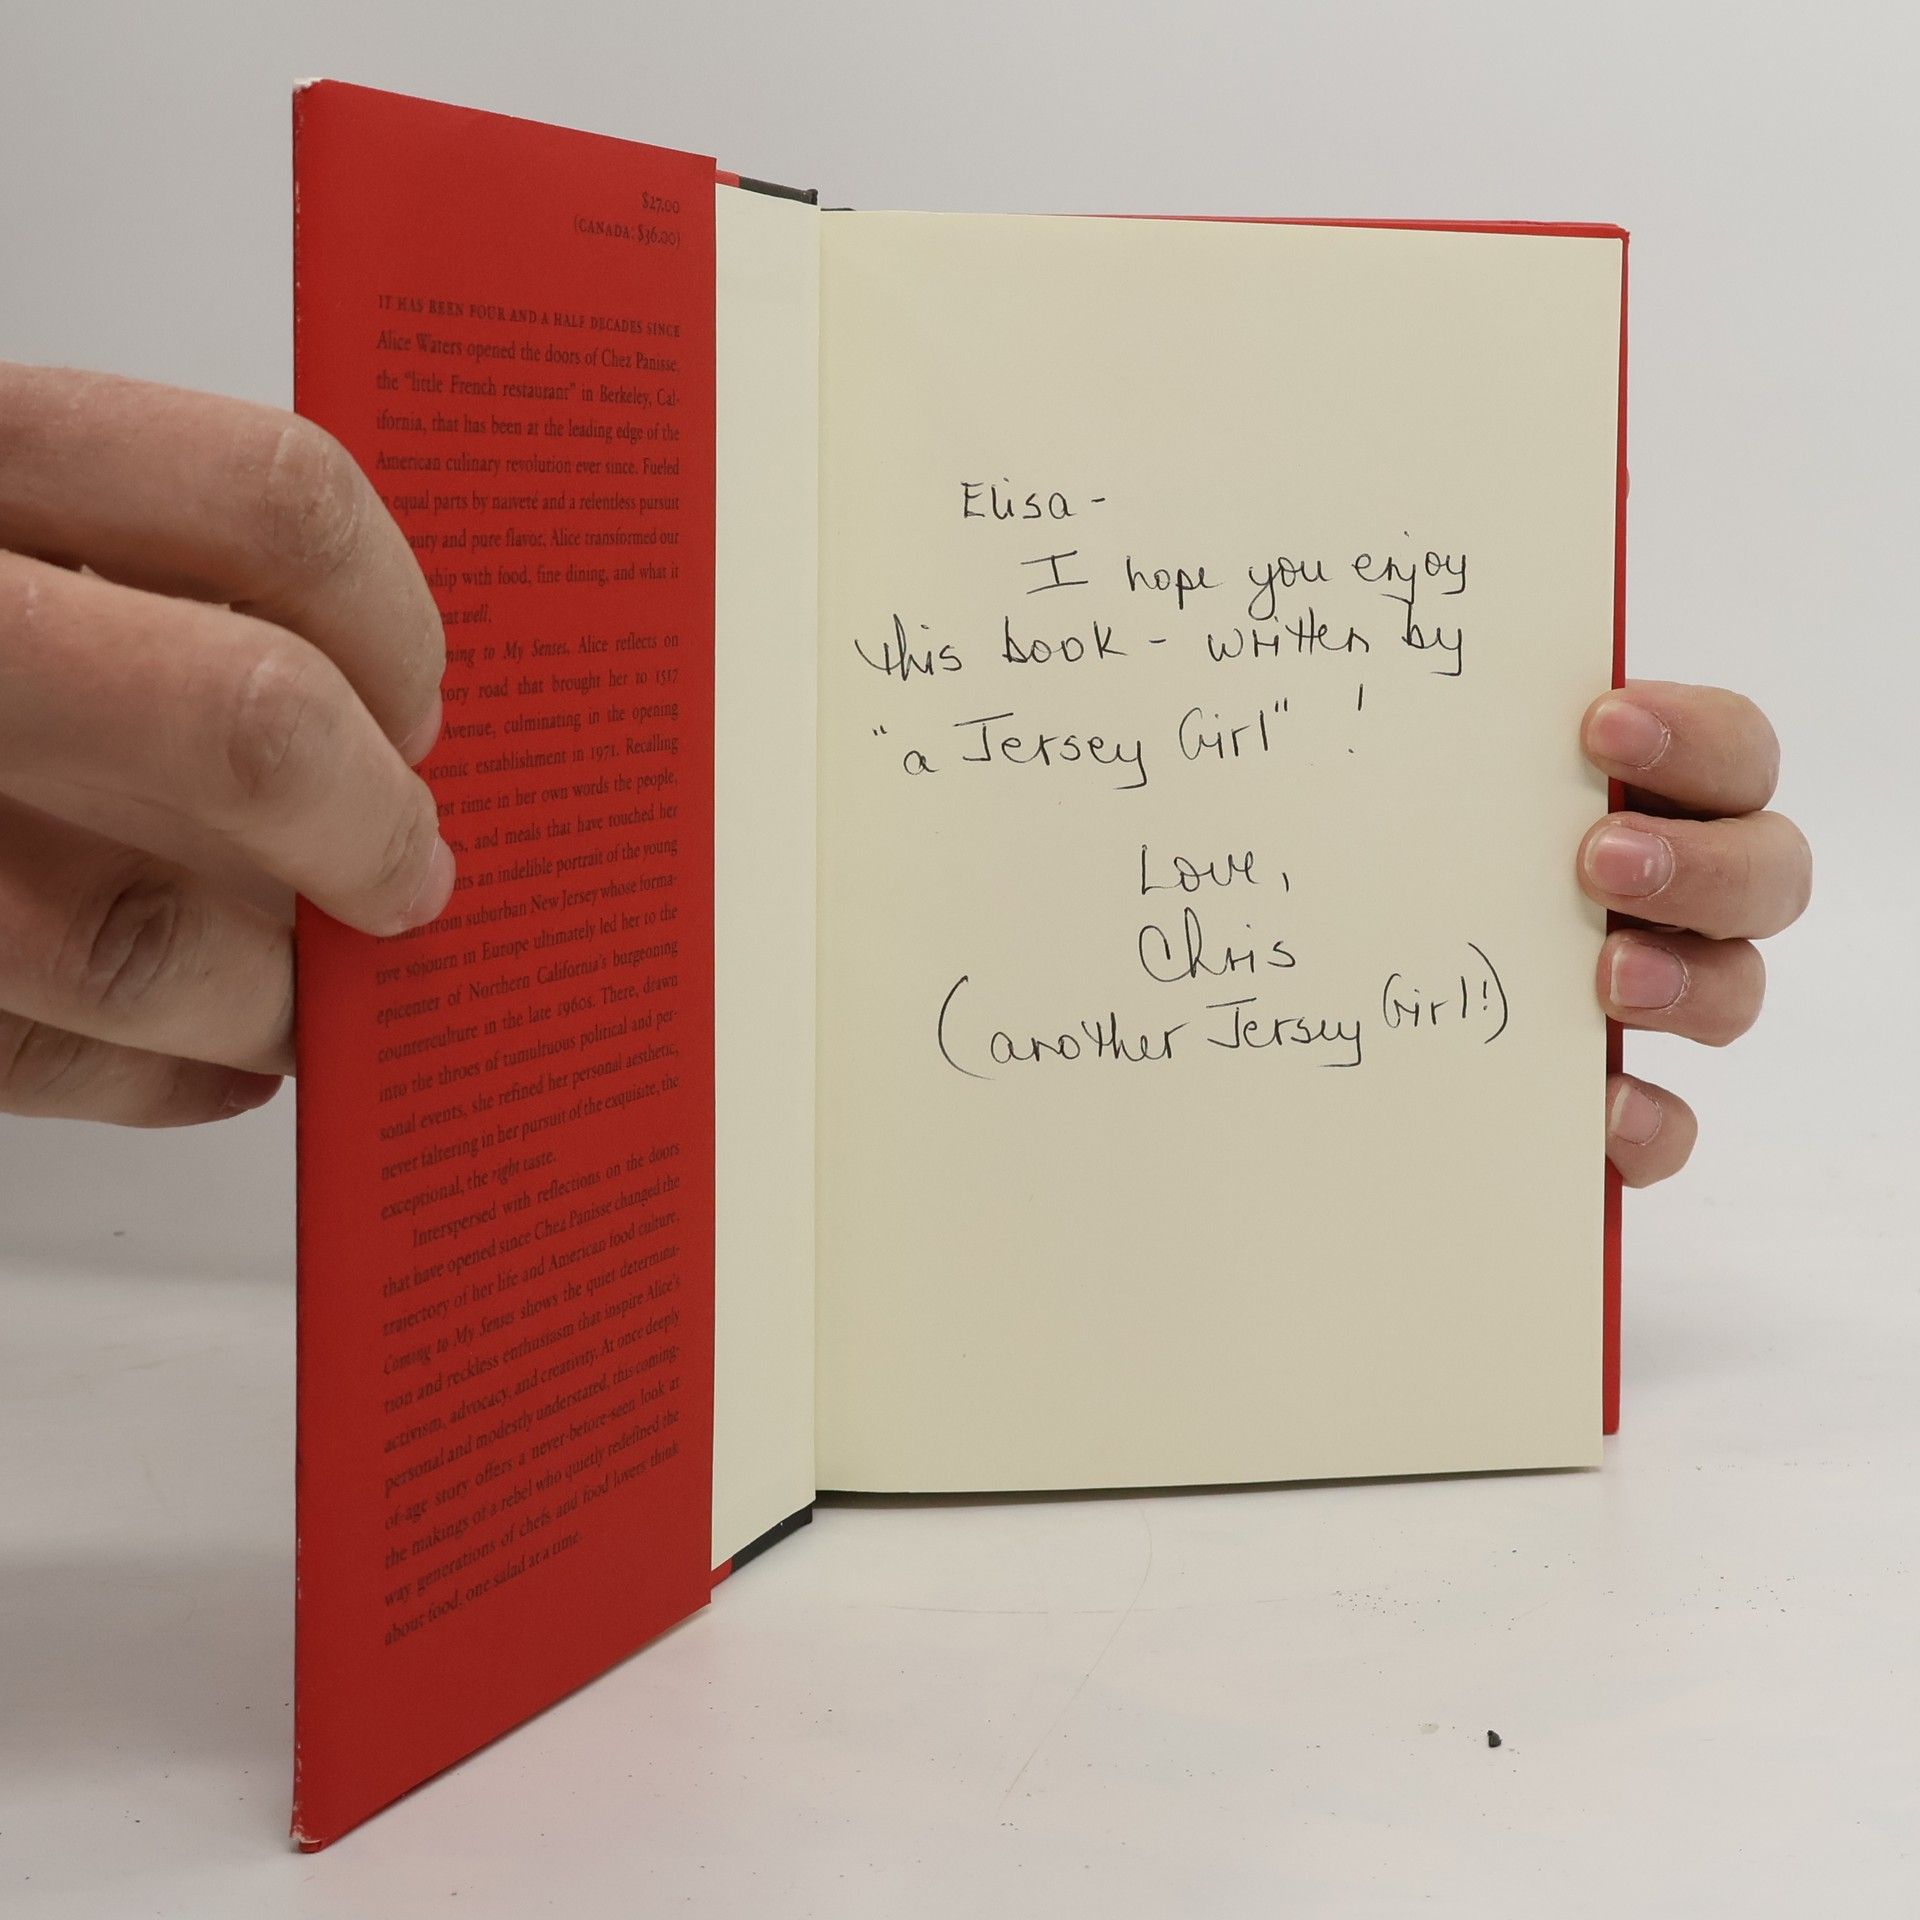 $27.00
(CANADA: $36.00)
IT HAS BEEN FOUR AND A HALF DECADES SINCE
Alice Waters opened the doors of Chez Panisse,
the "little French restaurant" in Berkeley, Cal-
ifornia, that has been at the leading edge of the
American culinary revolution ever since. Fueled
equal parts by naïveté and a relentless pursuit
auty and pure flavor, Alice transformed our
ship with food, fine dining, and what it
eat well.
ming to My Senses, Alice reflects on
ory road that brought her to 1517
Avenue, culminating in the opening
iconic establishment in 1971. Recalling
rst time in her own words the people,
es, and meals that have touched her
nts an indelible portrait of the young
woman from suburban New Jersey whose forma-
tive sojourn in Europe ultimately led her to the
epicenter of Northern California's burgeoning
counterculture in the late 1960s. There, drawn
into the throes of tumultuous political and per-
sonal events, she refined her personal aesthetic,
never faltering in her pursuit of the exquisite, the
exceptional, the right taste.
Interspersed with reflections on the doors
that have opened since Chez Panisse changed the
trajectory of her life and American food culture,
Coming to My Senses shows the quiet determina-
tion and reckless enthusiasm that inspire Alice's
activism, advocacy, and creativity. At once deeply
personal and modestly understated, this coming-
of-age story offers a never-before-seen look at
the makings of a rebel who quietly redefined the
way generations of chefs and food lovers think
about food, one salad at a time.
Elisa -
I hope you enjoy
this book - written by
"a Jersey Girl" !
Love,
Chris
(another Jersey Girl!)